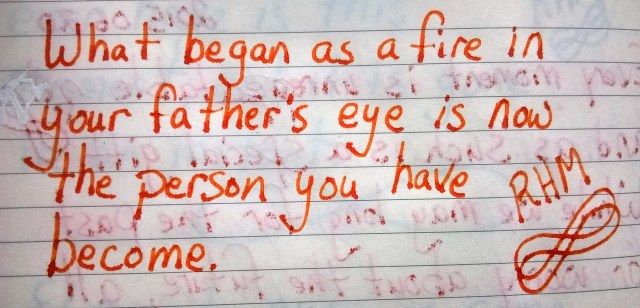 What began as a fire in
your father's eye is now
the person you have
become.
RHM